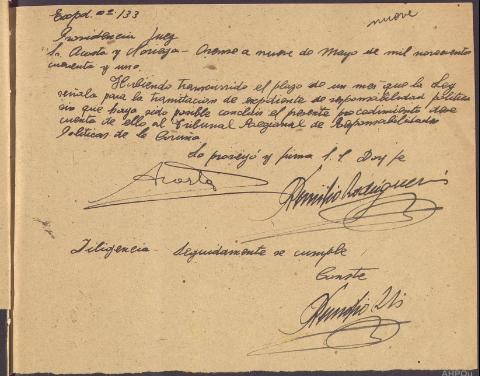 Expd. nº 133
nueve
Providencia Juez
Sr. Acosta y Noriega - Orense a nueve de Mayo de mil novecientos
cuarenta y uno.
Habiendo transcurrido el plazo de un mes que la Ley
señala para la tramitación de expediente de responsabilidad política
sin que haya sido posible concluir el presente procedimiento dese
cuenta de ello al Tribunal Regional de Responsabilidades
Políticas de la Coruña.
Lo proveyó y firma S.S. Doy fe
Acosta
Rodríguez
Diligencia - Seguidamente se cumple
Conste
AHPOu